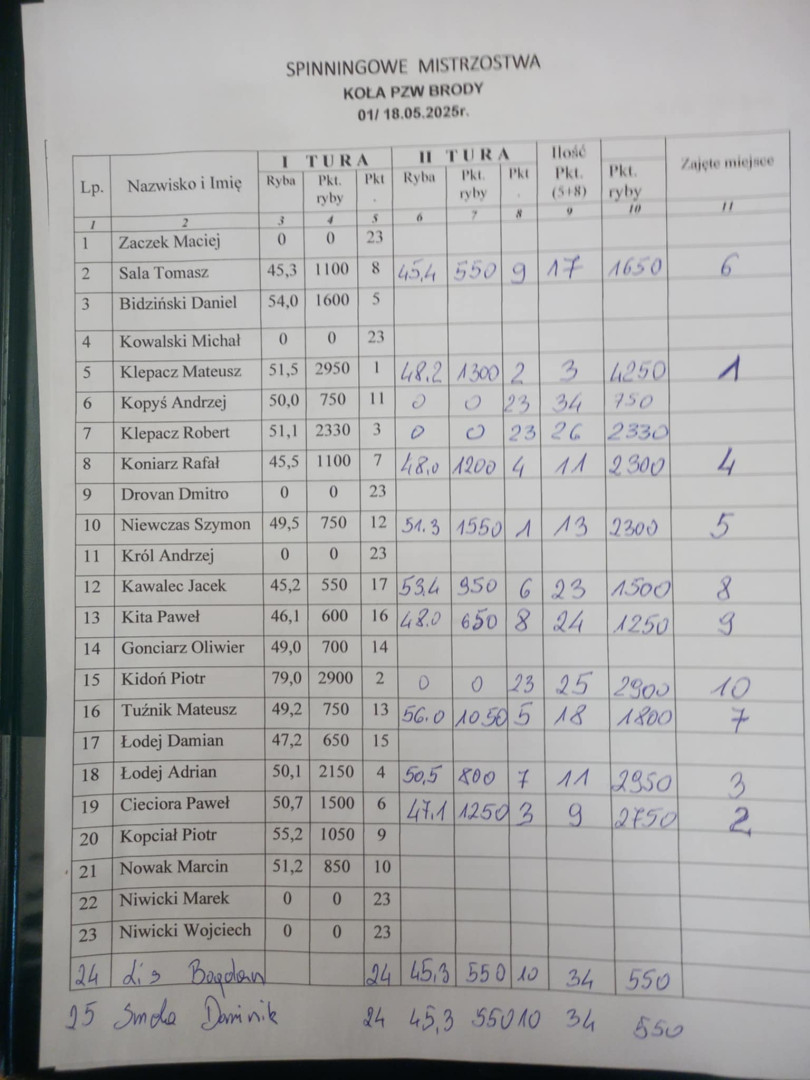 SPINNINGOWE MISTRZOSTWA
KOŁA PZW BRODY
01/ 18.05.2025r.
Lp. Nazwisko i Imię I TURA II TURA Ilość Pkt. (5+8) Pkt. ryby Zajęte miejsce
Ryba Pkt. ryby Pkt . Ryba Pkt. ryby Pkt .
1 2 3 4 5 6 7 8 9 10 11
1 Zaczek Maciej 0 0 23
2 Sala Tomasz 45,3 1100 8 45,4 550 9 17 1650 6
3 Bidziński Daniel 54,0 1600 5
4 Kowalski Michał 0 0 23
5 Klepacz Mateusz 51,5 2950 1 48,2 1300 2 3 4250 1
6 Kopyś Andrzej 50,0 750 11 0 0 23 34 750
7 Klepacz Robert 51,1 2330 3 0 0 23 26 2330
8 Koniarz Rafał 45,5 1100 7 48,0 1200 4 11 2300 4
9 Drovan Dmitro 0 0 23
10 Niewczas Szymon 49,5 750 12 51.3 1550 1 13 2300 5
11 Król Andrzej 0 0 23
12 Kawalec Jacek 45,2 550 17 53,4 950 6 23 1500 8
13 Kita Paweł 46,1 600 16 48.0 650 8 24 1250 9
14 Gonciarz Oliwier 49,0 700 14
15 Kidoń Piotr 79,0 2900 2 0 0 23 25 2900 10
16 Tuźnik Mateusz 49,2 750 13 56.0 1050 5 18 1800 7
17 Łodej Damian 47,2 650 15
18 Łodej Adrian 50,1 2150 4 50,5 800 7 11 2950 3
19 Cieciora Paweł 50,7 1500 6 47,1 1250 3 9 2750 2
20 Kopciał Piotr 55,2 1050 9
21 Nowak Marcin 51,2 850 10
22 Niwicki Marek 0 0 23
23 Niwicki Wojciech 0 0 23
24 Lis Bogdan 24 45,3 550 10 34 550
25 Smola Dominik 24 45,3 550 10 34 550